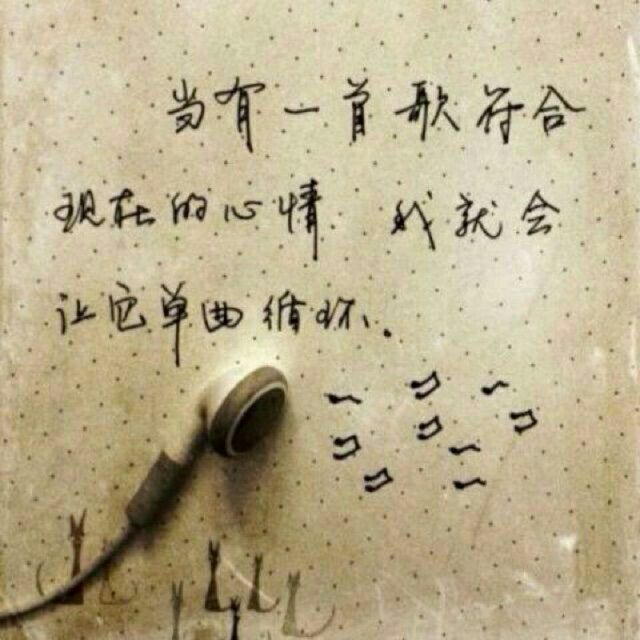 当有一首歌符合
现在的心情 我就会
让它单曲循环.